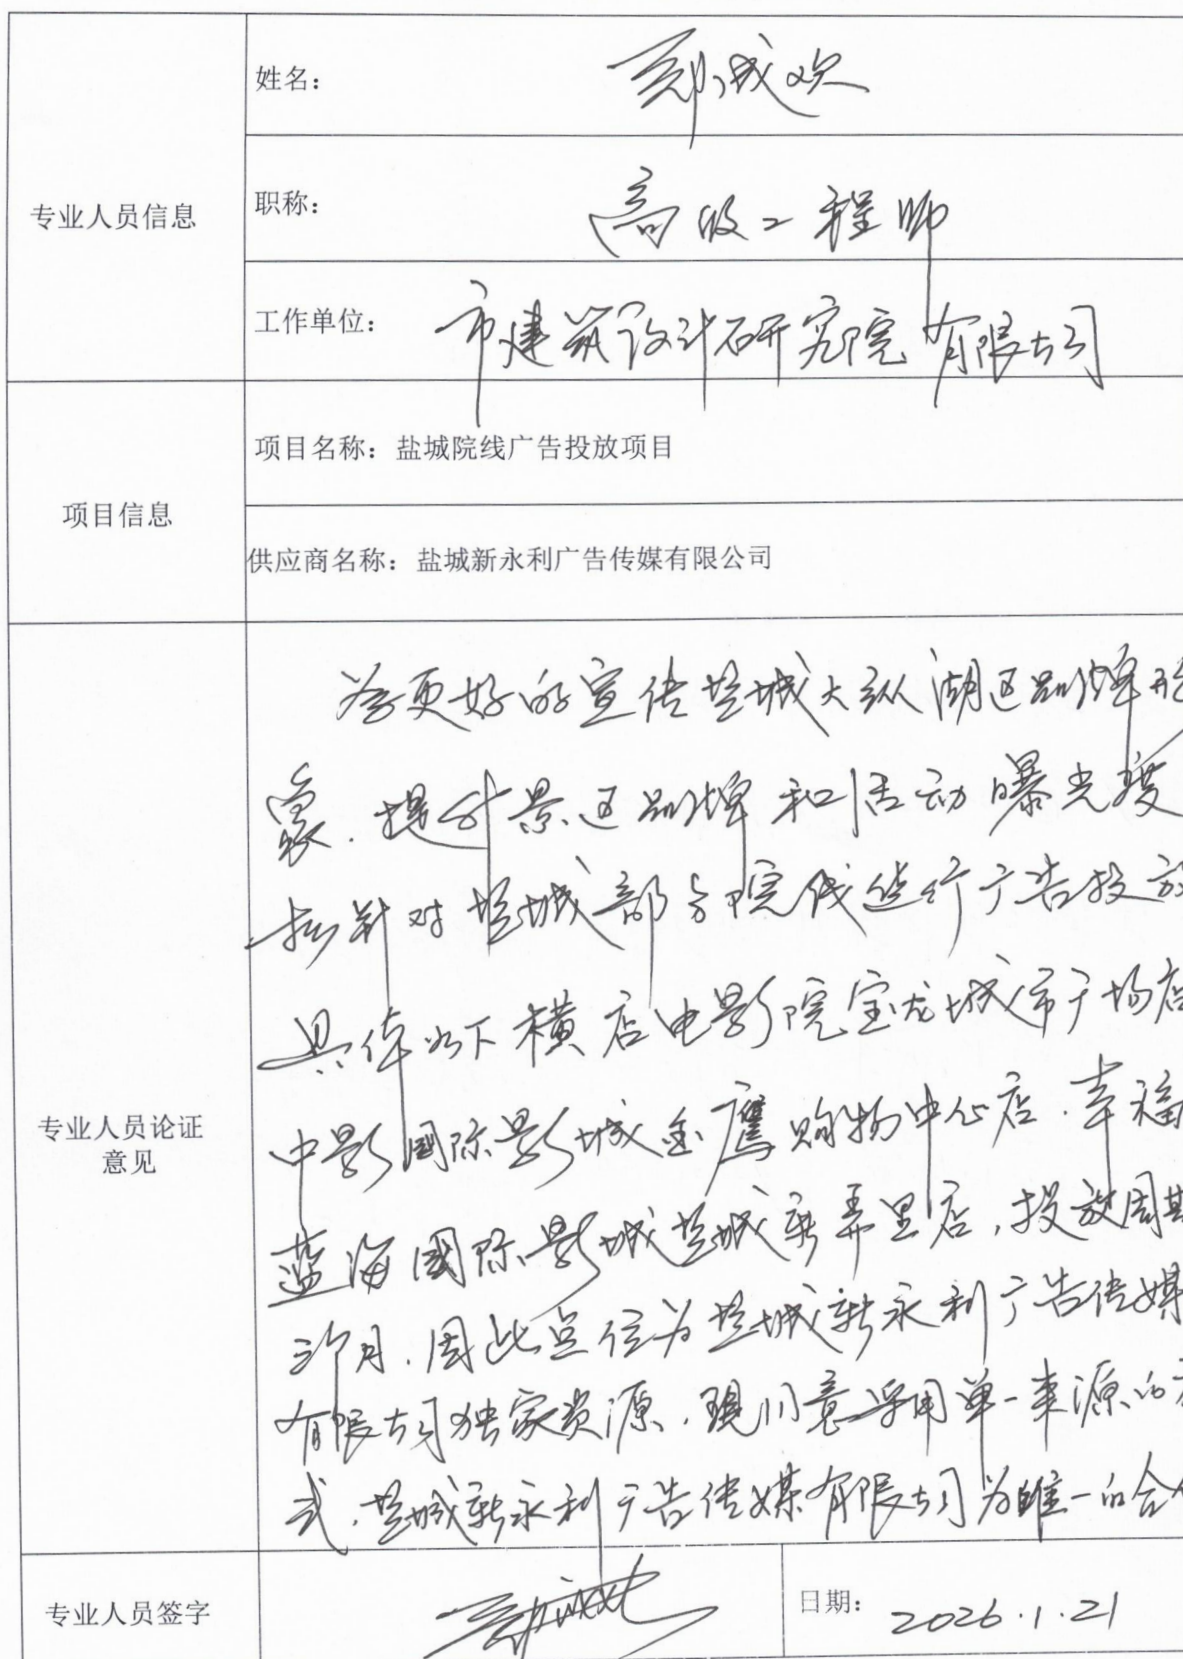 专业人员信息
姓名：郑成欢
职称：高级工程师
工作单位：市建筑设计研究院有限公司
项目信息
项目名称：盐城院线广告投放项目
供应商名称：盐城新永利广告传媒有限公司
专业人员论证
意见
为更好的宣传盐城大纵湖区品牌形
象，提升景区品牌和活动曝光度
拟针对盐城部分院线进行广告投放
具体如下横店电影院宝龙城市广场店
中影国际影城金鹰购物中心店、幸福
蓝海国际影城盐城新弄里店，投放周期
三个月，因此点位为盐城新永利广告传媒
有限公司独家资源，现同意采用单一来源的方
式，盐城新永利广告传媒有限公司为唯一的合作
专业人员签字
日期：2026.1.21